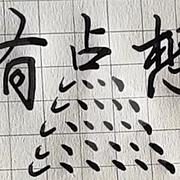 有点想